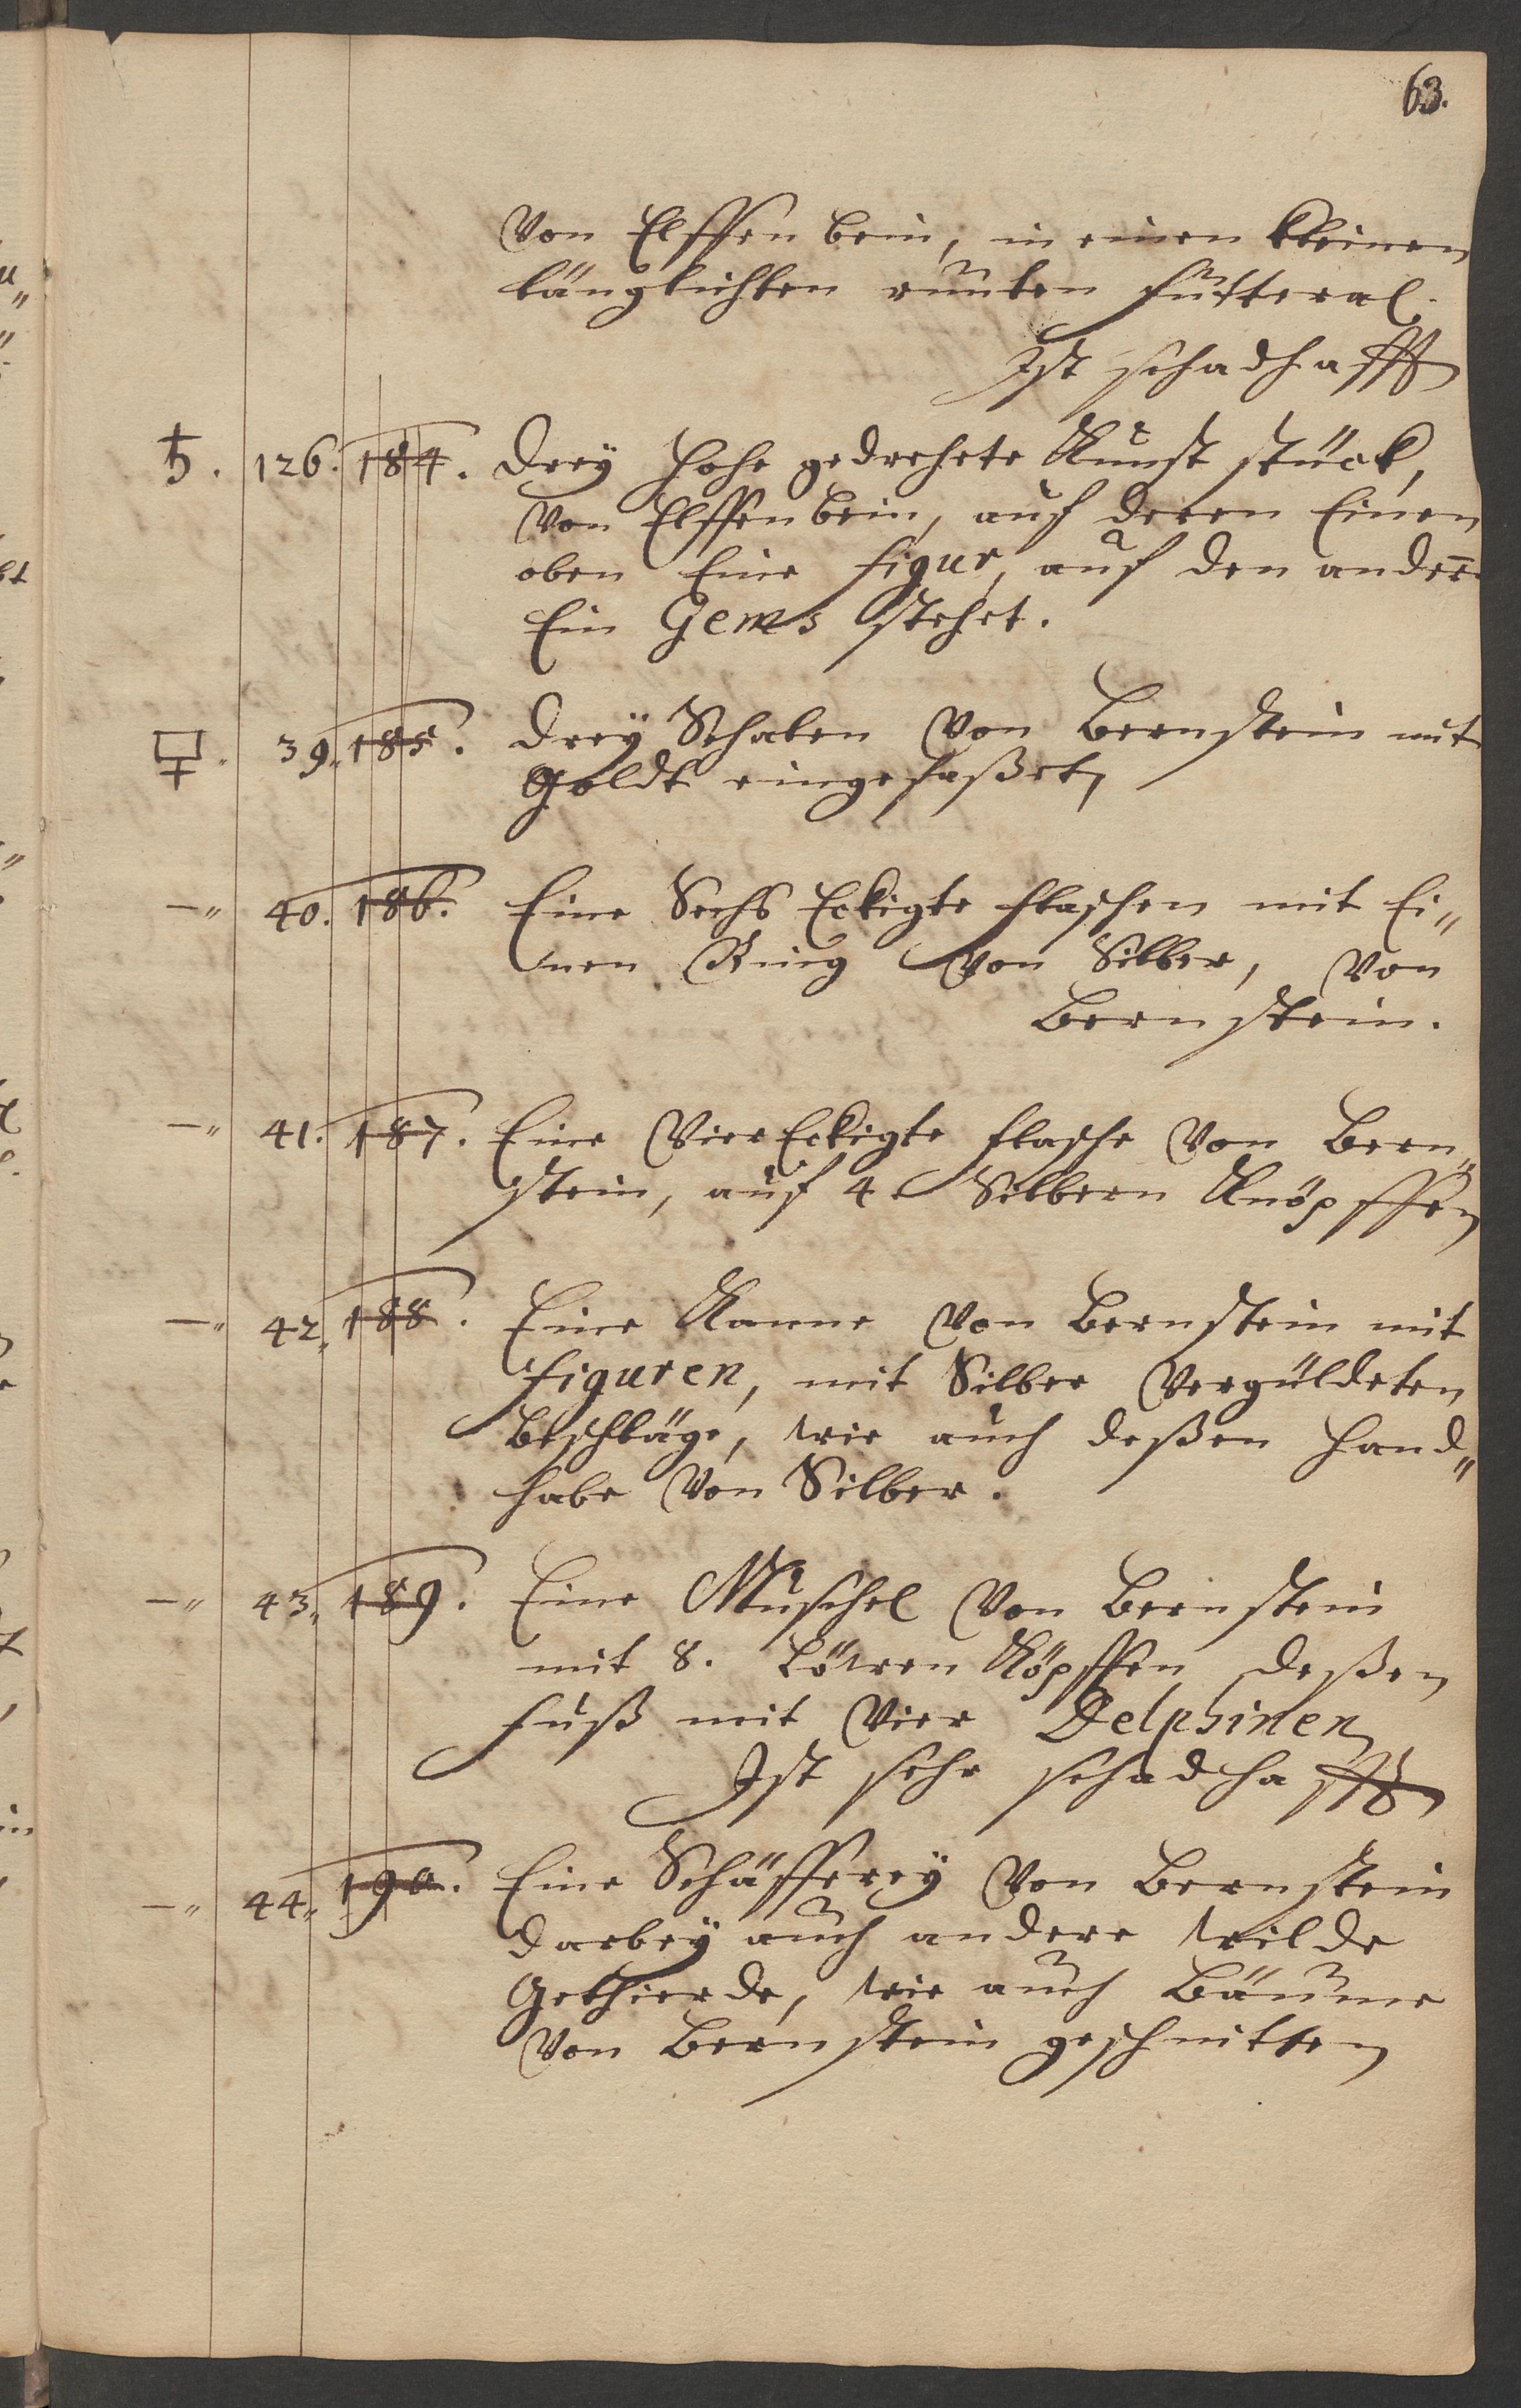 63.
Von Elffenbein, in einen kleinen
länglichten runten Futteral.
Ist schadhafft
♄. 126. 184. Drey hohe gedrehete Kunst stück,
Von Elffenbein, auf deren Einen
oben Eine Figur, auf den andern
Ein Gems stehet.
39. 185. Drey Schalen Von Bernstein mit
Goldt eingefaßet,
—„ 40. 186. Eine Sechs Eckigte flaschen mit Ei„
nen Ring Von Silber, Von
Bernstein.
—„ 41. 187. Eine Vier Eckigte flasche Von Bern„
stein, auf 4 Silbern Knöpffen
—„ 42„ 188. Eine Kanne Von Bernstein mit
Figuren, mit Silber Vergüldeten
Beschläge, wie auch deßen Hand„
habe Von Silber.
—„ 43„ 189. Eine Muschel Von Bernstein
mit 8. Löwen Köpffen deßen
fuß mit Vier Delphinen,
Ist sehr schadhafft
—„ 44„ 190. Eine Schäfferey Von Bernstein
darbey auch andere wilde
Gethierde, wie auch Bäume
Von Bernstein geschnitten